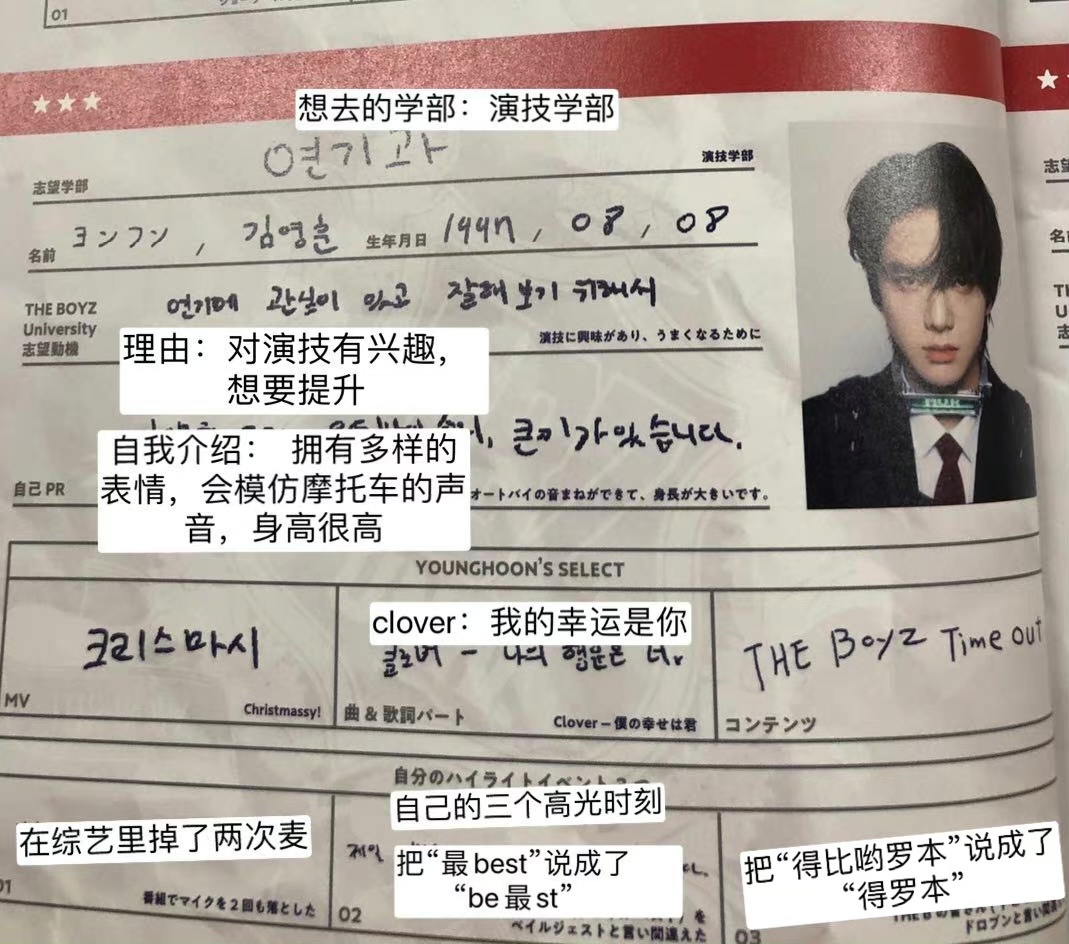 01
想去的学部：演技学部
연기과
演技学部
志望学部
名前 ヨンフン , 김영훈 生年月日 1997, 08, 08
THE BOYZ
University
志望動機
연기에 관심이 있고 잘해 보기 위해서
演技に興味があり、うまくなるために
理由：对演技有兴趣，
想要提升
큰 키가 있습니다.
自我介绍： 拥有多样的
表情，会模仿摩托车的声
音，身高很高
自己 PR
オートバイの音まねができて、身長が大きいです。
YOUNGHOON'S SELECT
크리스마시
MV
Christmassy!
clover：我的幸运是你
클로버 - 나의 행운은 너
曲 & 歌詞パート
Clover – 僕の幸せは君
THE BOYZ Time out
コンテンツ
自分のハイライトイベント
自己的三个高光时刻
在综艺里掉了两次麦
01
番組でマイクを2回も落とした
제일
把“最best”说成了
“be最st”
02
を
ベイルジェストと言い間違えた
把“得比哟罗本”说成了
“得罗本”
03
ドロブンと言い間違
志望
名前